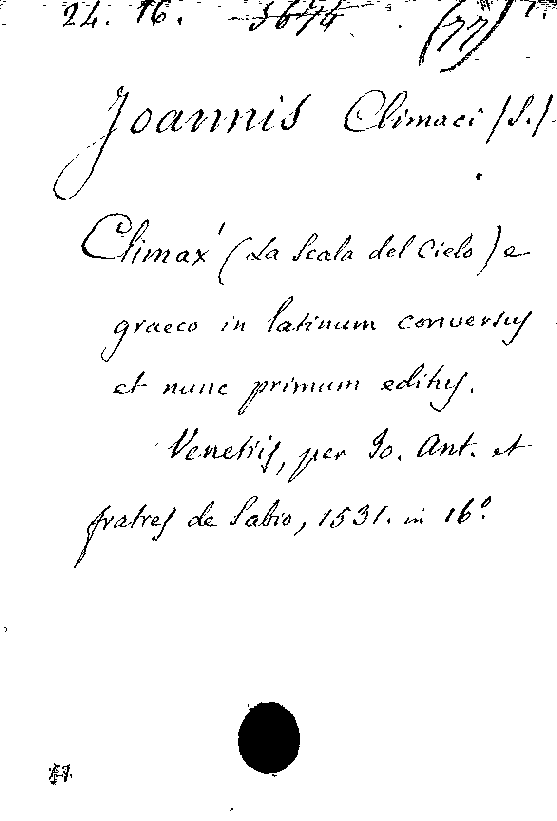 24. 16. 3676 (77)
Joannis Climaci /S./
Climax (La Scala del Cielo) e
graeco in latinum conversus
et nunc primum editus.
Venetiis, per Jo. Ant. et
fratres de Sabio, 1531. in 16.º